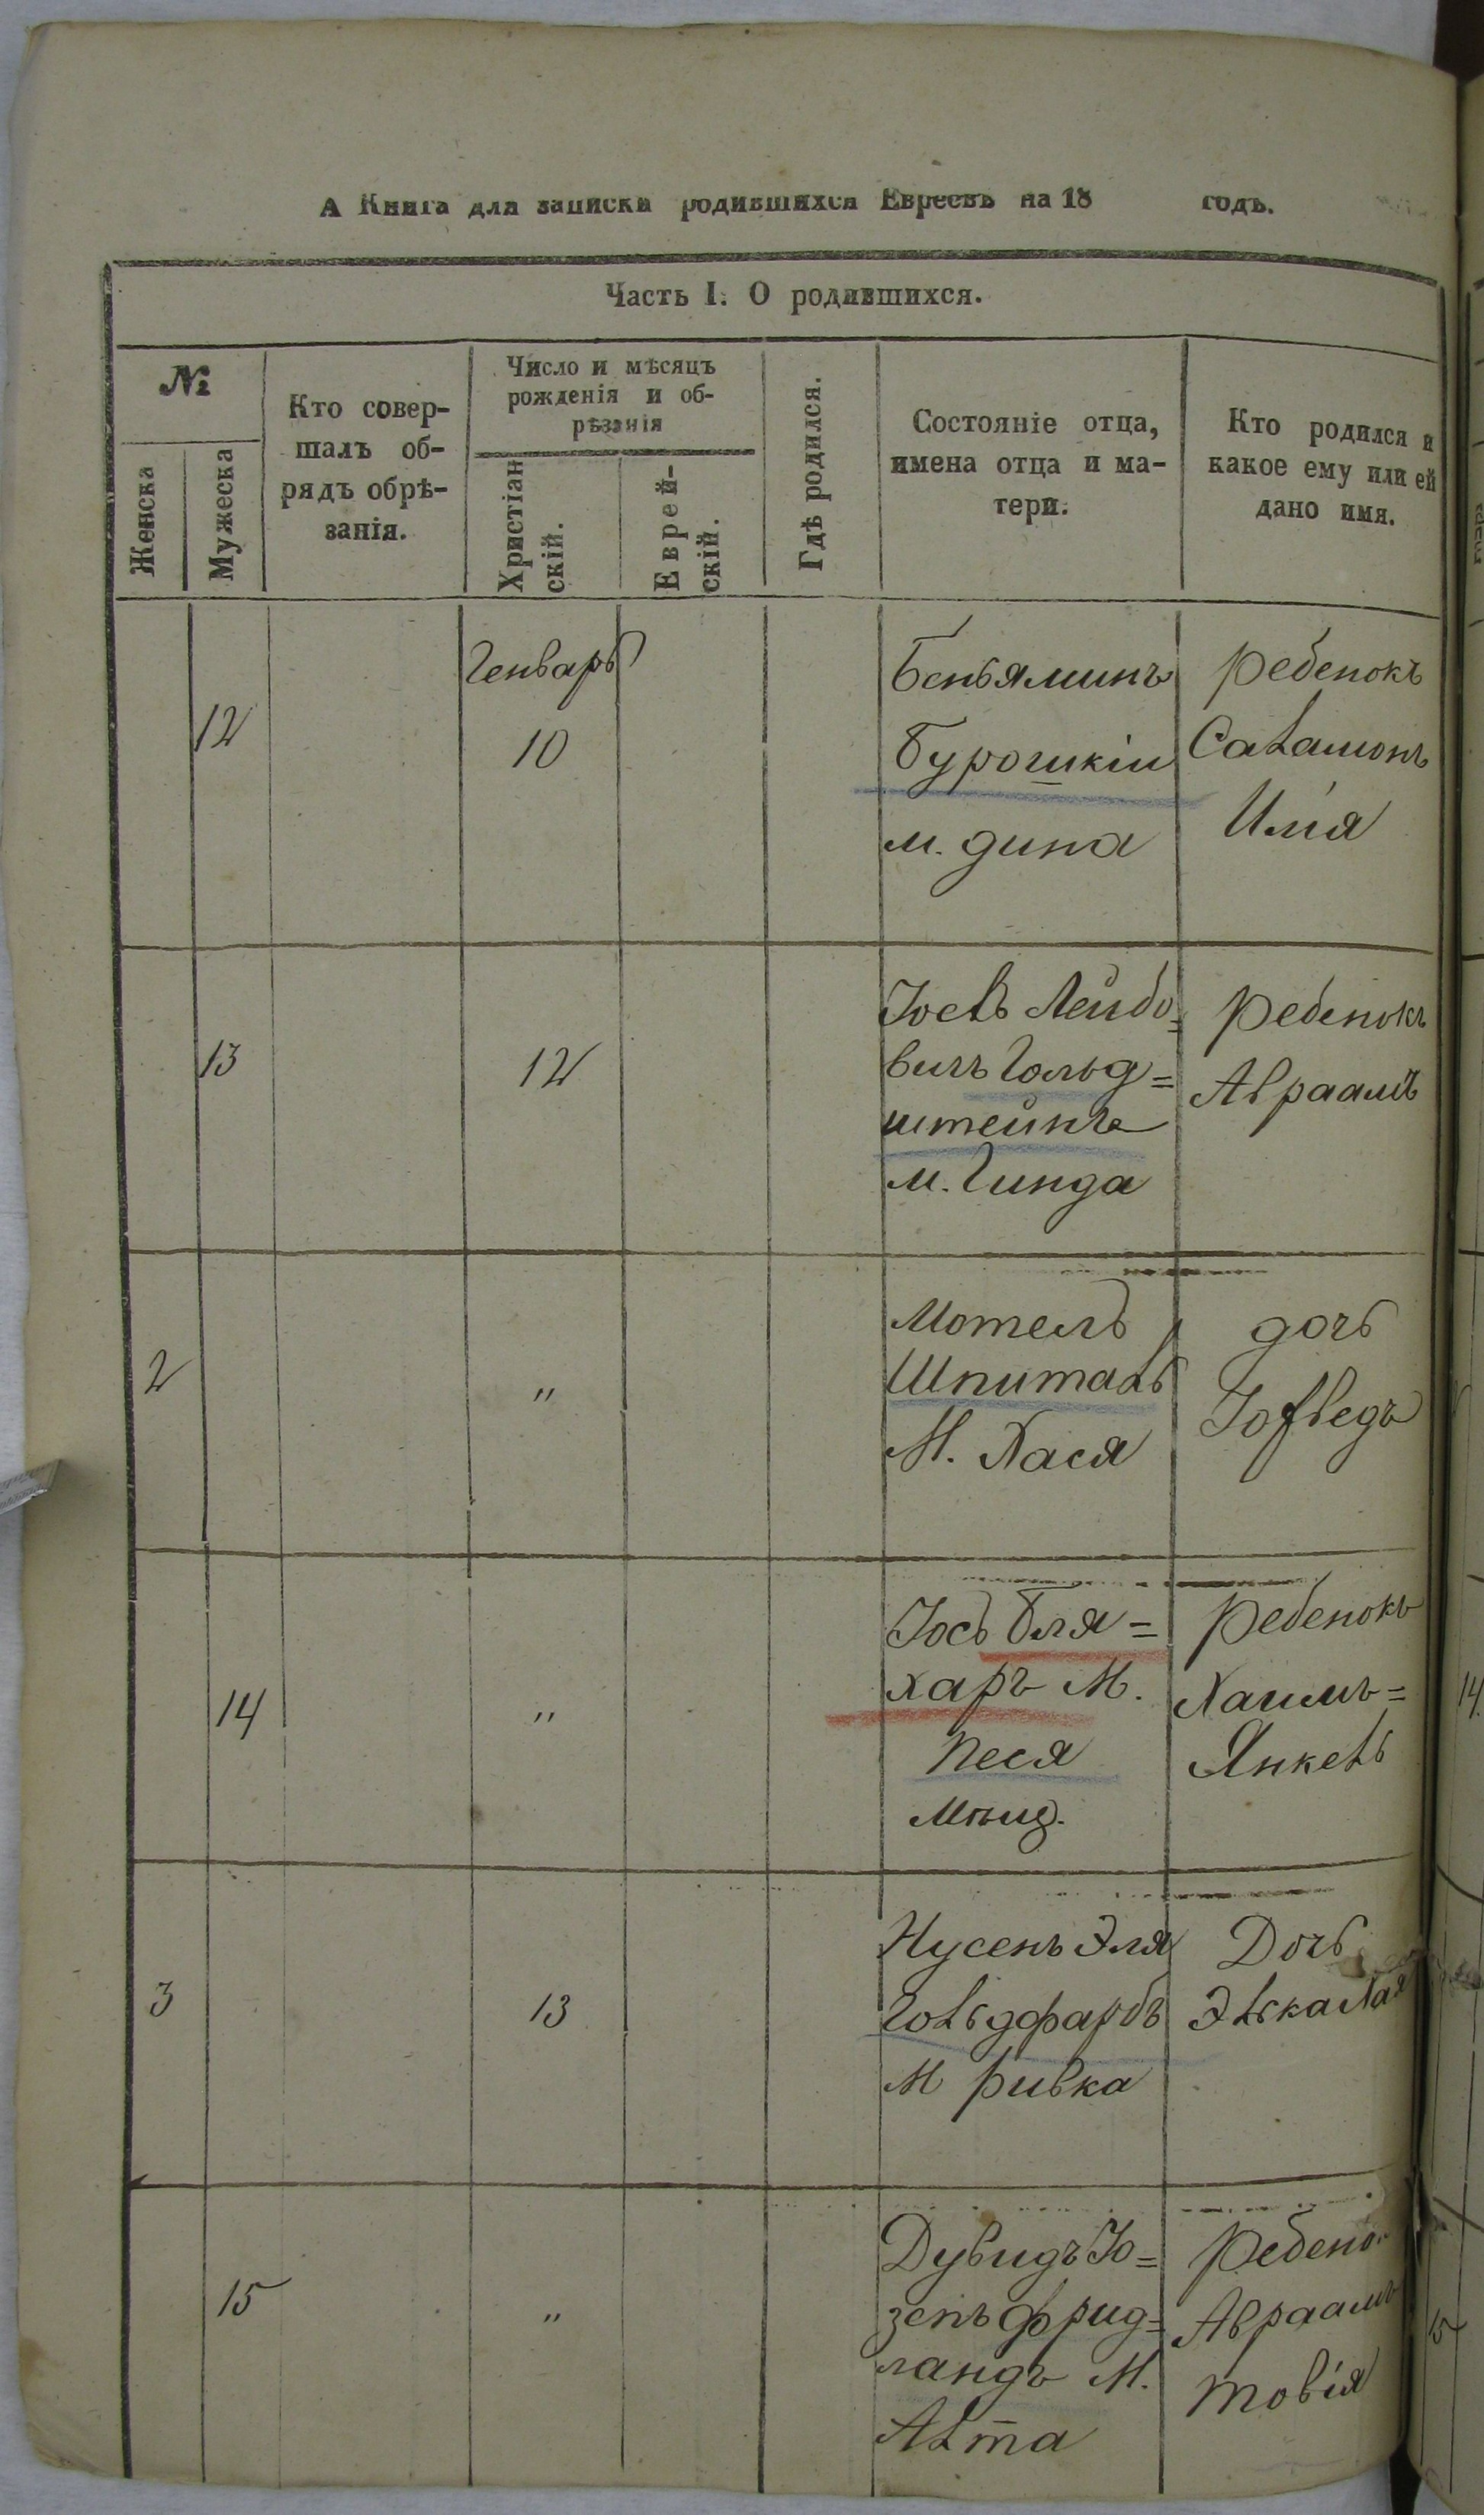 А Книга для записки родившихся Евреевъ на 18 годъ.
Часть I. О родившихся.
№
Женска
Мужеска
Кто совер-
шалъ об-
рядъ обрѣ-
занія.
Число и мѣсяцъ
рожденія и об-
рѣзанія
Христіан
скій.
Еврей-
скій.
Гдѣ родился.
Состояніе отца,
имена отца и ма-
тери.
Кто родился и
какое ему или ей
дано имя.
12
Генварь
10
Беньяминъ
Бурошкін
м. дина
Ребенокъ
Саламонъ
Илія
13
12
Іосель Лейбо=
вичъ Гольд=
штейнъ
м. Гинда
Ребенокъ
Авраамъ
2
"
Мотель
Шпиталь
М. Хася
дочь
14
"
Іось Бля=
харъ М.
Песя
Ребенокъ
Хаимъ=
Янкель
3
13
Нусенъ Эля
Гольдфарбъ
М Ривка
Дочь
Элька Лая
15
"
Дувидъ Іо=
зепъ Фрид=
ландъ М.
Алта
Ребено
Авраамъ
товія
14
15